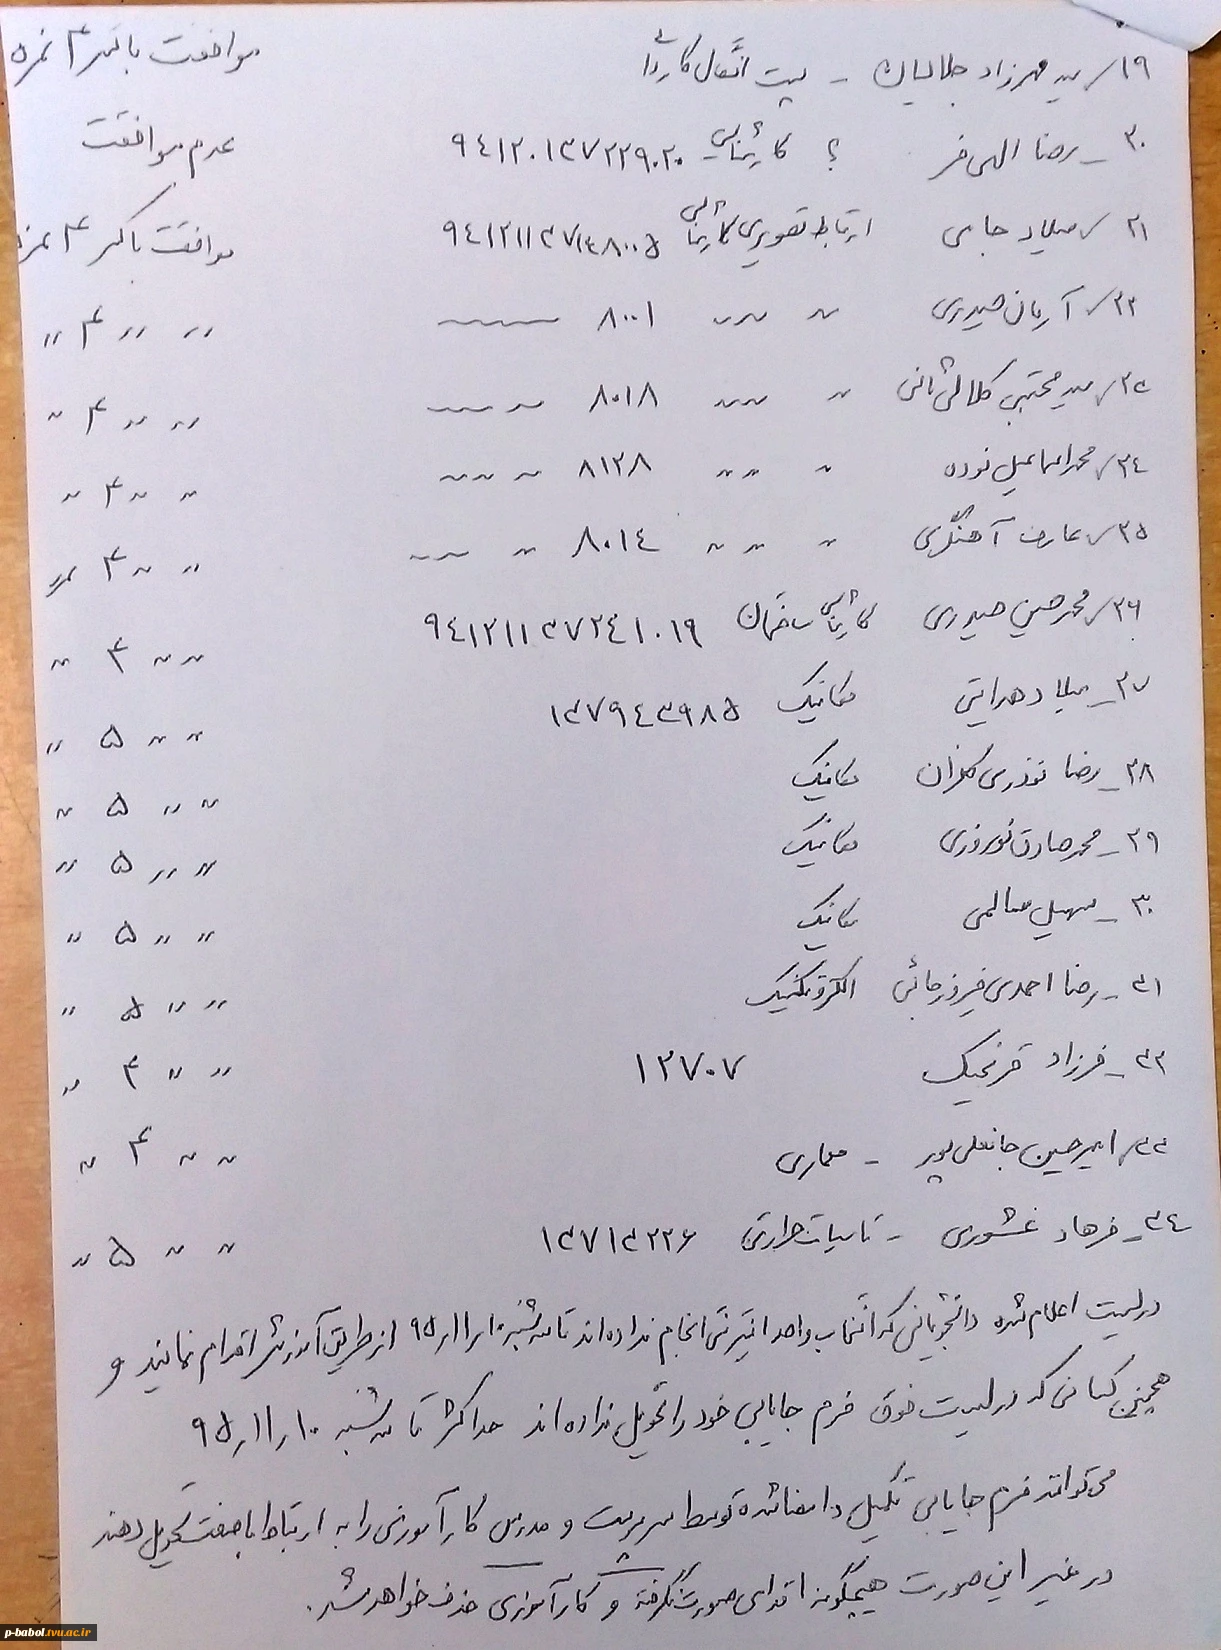 ۱۹/ سید مهرزاد جلالیان - پست انتقال کاردانی موافقت با کسر ۴ نمره
۲۰_ رضا الهی فر ؟ کارشناسی ۹۴۱۲۰۱۳۷۲۲۹۰۲۰ عدم موافقت
۲۱/ میلاد حامی ارتباط تصویری کارشناسی ۹۴۱۲۱۱۳۷۱۴۸۰۰۵ موافقت با کسر ۴ نمره
۲۲/ آریان حیدری 〃 〃 ۸۰۰۱ 〃 〃 ۴ 〃
۲۳/ سید مجتبی کلالی ثانی 〃 〃 ۸۰۱۸ 〃 〃 ۴ 〃
۲۴/ محمد اسماعیل نوده 〃 〃 〃 ۸۱۲۸ 〃 〃 ۴ 〃
۲۵/ عارف آهنگری 〃 〃 〃 ۸۰۱۴ 〃 〃 ۴ نمره
۲۶/ محمدحسین حیدری کارشناسی ساختمان ۹۴۱۲۱۱۳۷۲۴۱۰۱۹ 〃 〃 ۴ 〃
۲۷_ میلاد هدایتی مکانیک ۱۳۷۹۴۳۹۸۵ 〃 〃 ۵ 〃
۲۸_ رضا نوذری مکانیک 〃 〃 ۵ 〃
۲۹_ محمدصادق نوروزی مکانیک 〃 〃 ۵ 〃
۳۰_ سهیل سالمی مکانیک 〃 〃 ۵ 〃
۳۱_ رضا احمدی فیروزجائی الکتروتکنیک 〃 〃 ۵ 〃
۳۲_ فرزاد قرنجیک ۱۲۷۰۷ 〃 〃 ۴ 〃
۳۳/ امیرحسین جانعلی پور - معماری 〃 〃 ۴ 〃
۳۴_ فرهاد غشوری - تاسیسات حرارتی ۱۳۷۱۳۲۲۶ 〃 〃 ۵ 〃
در لیست اعلام شده دانشجویانی که انتخاب واحد اینترنتی انجام نداده اند تا سه شنبه ۹۵/۱۱/۱۰ از طریق آموزش اقدام نمایند و
همچنین کسانی که در لیست فوق فرم جایابی خود را تحویل نداده اند حداکثر تا سه شنبه ۹۵/۱۱/۱۰
می توانند فرم جایابی تکمیل و امضا شده توسط سرپرست و مدرس کارآموزی را به ارتباط با صنعت تحویل دهند
در غیر این صورت هیچگونه اقدامی صورت نگرفته و کارآموزی حذف خواهد شد.
p-babol.tvu.ac.ir